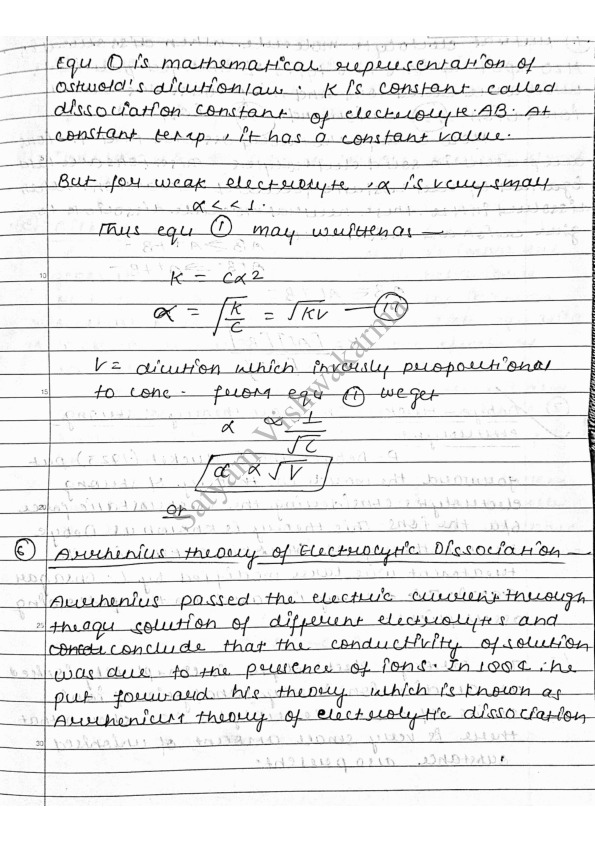 Equ ① is mathematical representation of
Ostwold's dicution law. K is constant called
dissociation constant of electrolyte AB. At
constant temp, it has a constant value.
But for weak electrolyte, α is very small
α << 1.
Thus equ ① may written as —
10
K = Cα2
α = √K/C = √KV —
V = dilution which inversly proportional
15
to conc. from equ ⑪ we get
α ∝ 1/√C
α ∝ √V
20
or
⑥ Arrhenius theory of Electrocytic Dissociation —
Arrhenius passed the electric current through
25
the aqu solution of different electrolytes and
conclude that the conductivity of solution
was due to the presence of ions. In he
put forward his theory which is known as
Arrhenius theory of electrolytic dissociation
30
Satyam Vishwakarma